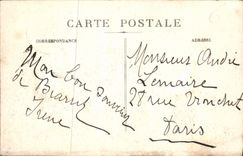 CARTE POSTALE
CORRESPONDANCE
ADRESSE
Mon bon souvenir
de Biarritz
Irène
Monsieur André
Lemaire
27 rue Tronchet
Paris